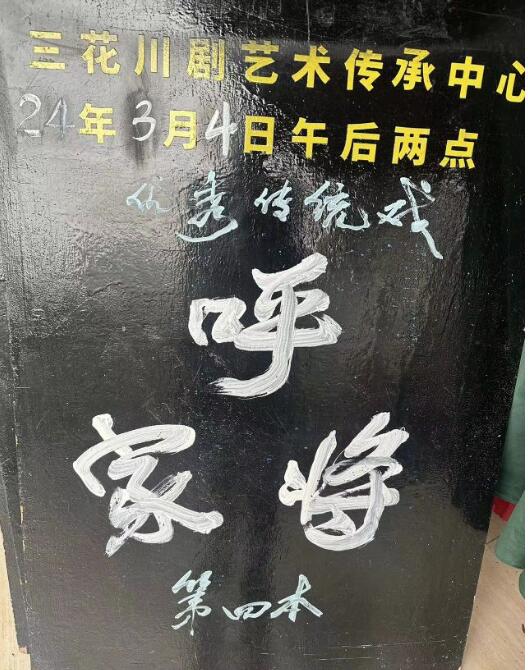 三花川剧艺术传承中心
24年3月4日午后两点
优秀传统戏
呼
家将
第四本